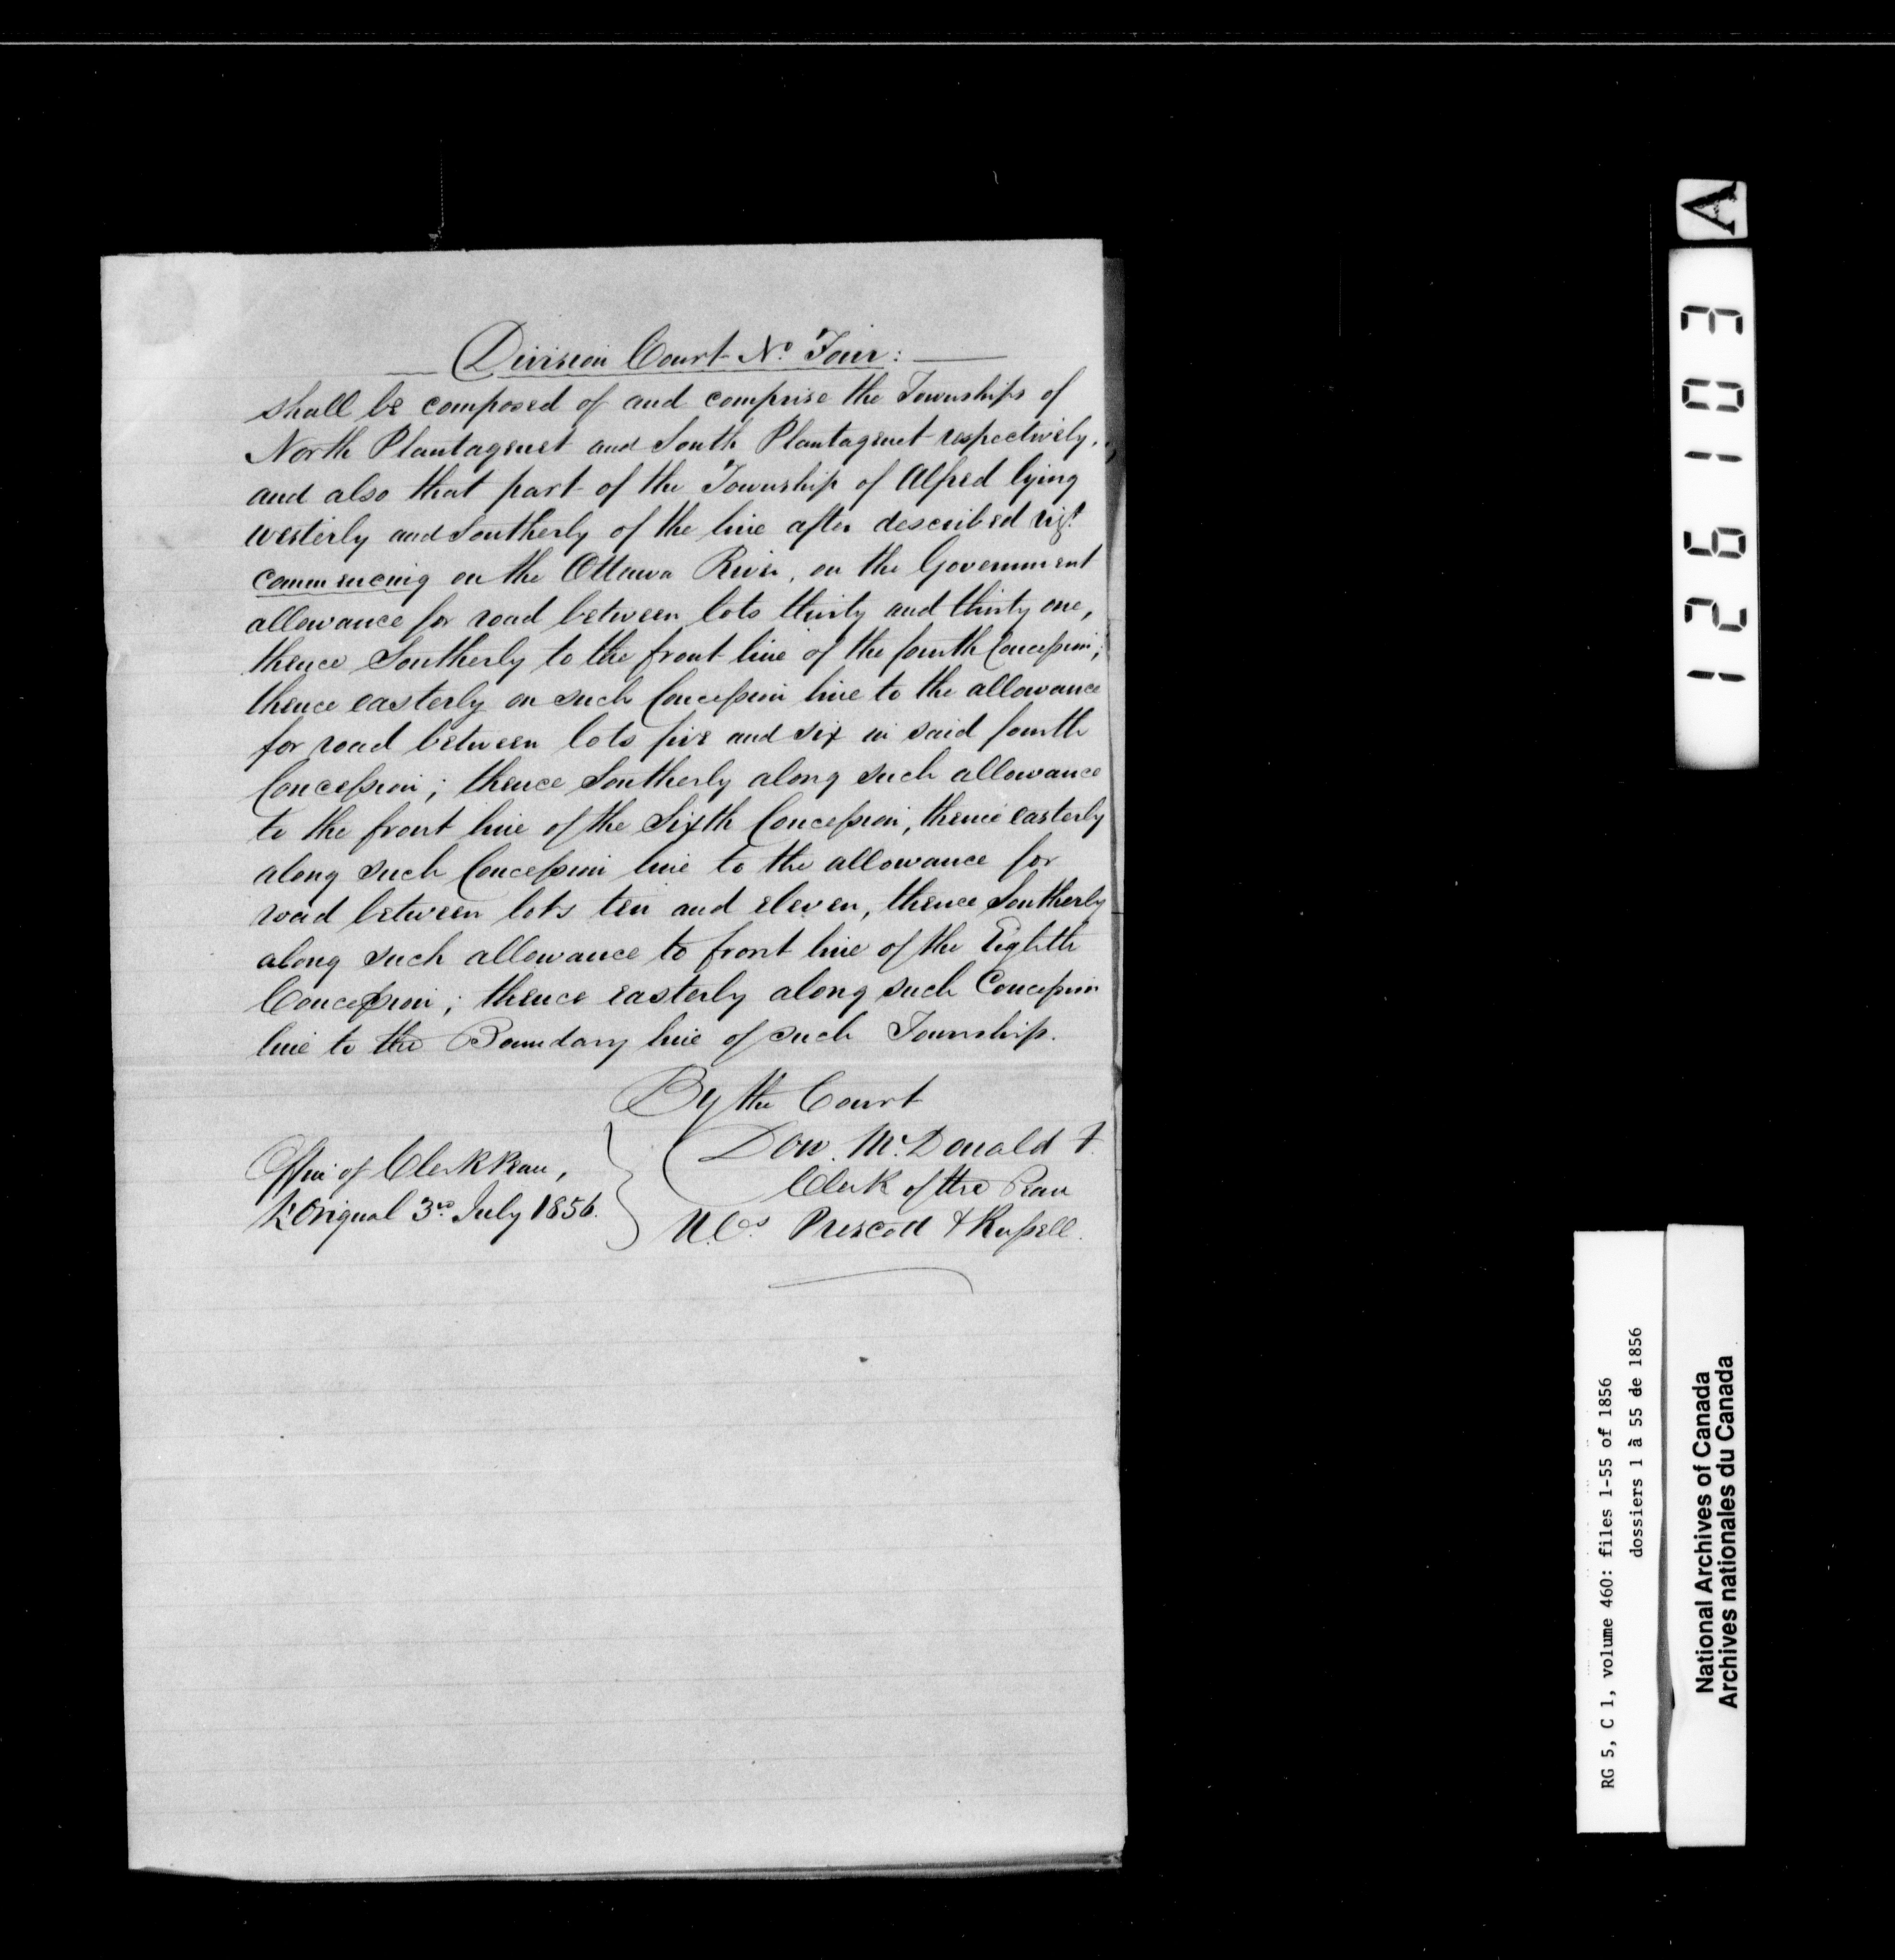 Division Court No. Four:
shall be composed of and comprise the Townships of
North Plantagenet and South Plantagenet respectively,
and also that part of the Township of Alfred lying
westerly and Southerly of the line after described vizt.
commencing on the Ottawa River, on the Government
allowance for road between lots thirty and thirty one,
thence Southerly to the front line of the fourth Concession;
thence easterly on such Concession line to the allowance
for road between lots five and six in said fourth
Concession; thence Southerly along such allowance
to the front line of the Sixth Concession, thence easterly
along such Concession line to the allowance for
road between lots ten and eleven, thence Southerly
along such allowance to front line of the Eighth
Concession; thence easterly along such Concession
line to the Boundary line of such Township.
By the Court
Don. McDonald
Clerk of the Peace
U.Cos Prescott & Russell.
Office of Clerk Peace,
L'Orignal 3rd July 1856.
A
126103
RG 5, C 1, volume 460: files 1-55 of 1856
dossiers 1 à 55 de 1856
National Archives of Canada
Archives nationales du Canada